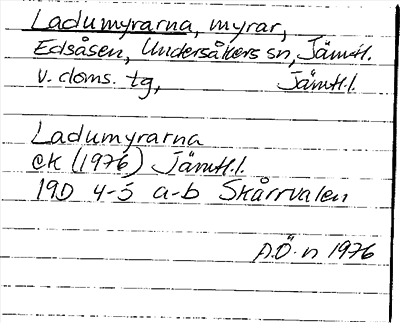 Ladumyrarna, myrar,
Edsåsen, Undersåkers sn, Jämtl.
v. doms. tg, Jämtl. l.
Ladumyrarna
ek (1976) Jämtl. l.
19D 4-5 a-b Skårrvalen
A.Ö. n 1976